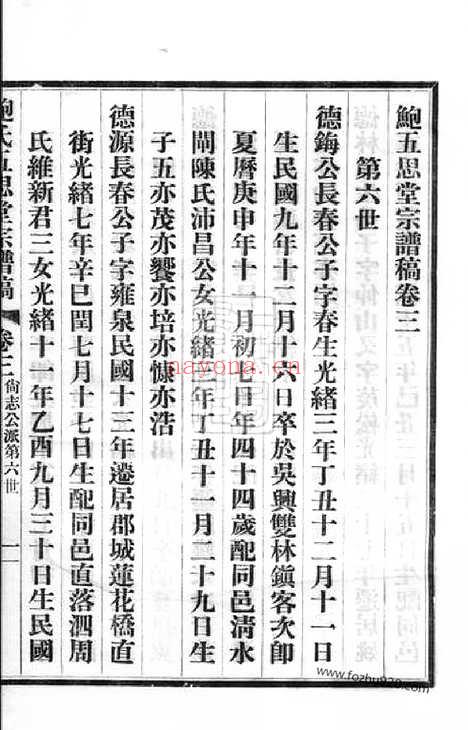 鮑五思堂宗譜稿卷三
第六世
德鋂公長春公子字春生光緒三年丁丑十二月十一日
生民國九年十二月十六日卒於吳興雙林鎭客次卽
夏曆庚申年十一月初七日年四十四歲配同邑清水
閘陳氏沛昌公女光緒三年丁丑十一月二十九日生
子五亦茂亦饗亦培亦慷亦浩
德源長春公子字雍泉民國十三年遷居郡城蓮花橋直
街光緒七年辛巳閏七月十七日生配同邑直落泗周
氏維新君三女光緒十一年乙酉九月三十日生民國
鮑氏五思堂宗譜稿 卷三 尙志公派第六世 一
nayona.cn
www.fozhu920.com